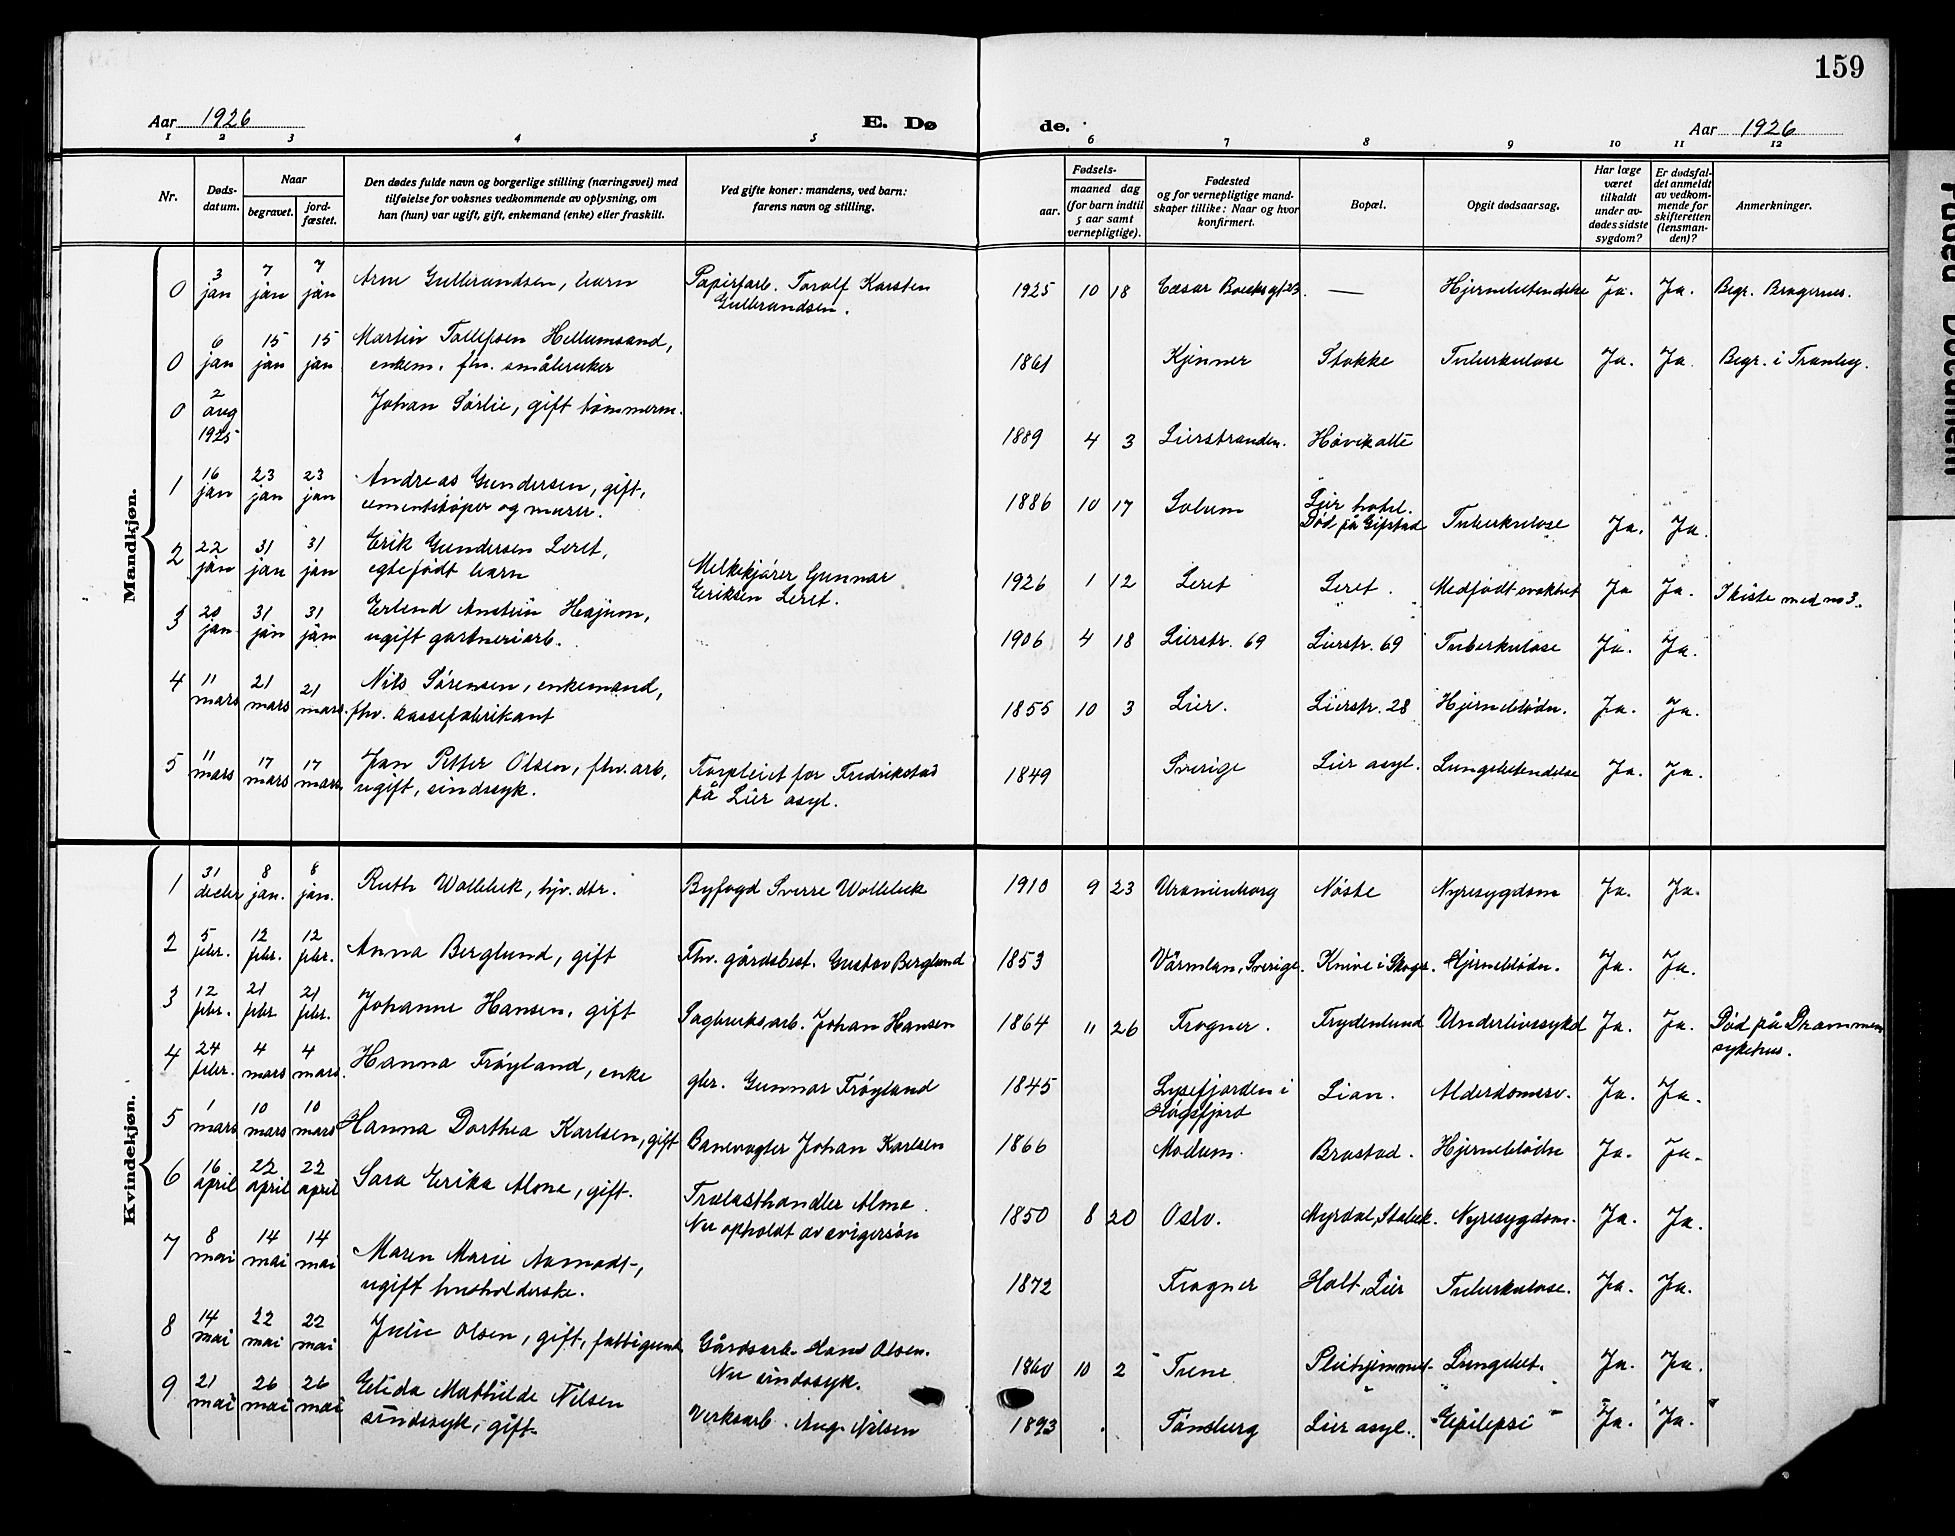 159
Aar 1926 E. Dø de. Aar 1926
1 2 3 4 5 6 7 8 9 10 11 12
Nr.
Døds-
datum.
Naar
begravet.
jord-
fæstet.
Den dødes fulde navn og borgerlige stilling (næringsvei) med
tilføielse for voksnes vedkommende av oplysning, om
han (hun) var ugift, gift, enkemand (enke) eller fraskilt.
Ved gifte koner: mandens, ved barn:
farens navn og stilling.
Fødsels-
aar.
maaned dag
(for barn indtil
5 aar samt
vernepligtige).
Fødested
og for vernepligtige mand-
skaper tillike: Naar og hvor
konfirmert.
Bopæl.
Opgit dødsaarsag.
Har læge
været
tilkaldt
under av-
dødes sidste
sygdom?
Er dødsfal-
det anmeldt
av vedkom-
mende for
skifteretten
(lensman-
den)?
Anmerkninger.
Mandkjøn.
0 3 jan 7 jan 7 jan Arne Gulbrandsen, barn Papirfarb. Torolf Karsten
Gulbrandsen. 1925 10 18 Cæsar Boeks gt 23. — Hjernebetendelse Ja. Ja. Begr. Bragernes.
0 6 jan 15 jan 15 jan Martin Tollefsen Hellumsand,
enkem. fhv. småbruker 1861 Kjenner Stokke Tuberkulose Ja. Ja. Begr. i Tranby.
0 2 aug 1925 Johan Sørlie, gift tømmerm. 1889 4 3 Lierstranden. Høvikalle
1 16 jan 23 jan 23 jan Andreas Gundersen, gift,
cementstøper og murer. 1886 10 17 Solum Lier hotel.
Død på Gifstad Tuberkulose Ja. Ja.
2 22 jan 31 jan 31 jan Erik Gundersen Leret,
egtefødt barn Melkekjører Gunnar
Eriksen Leret. 1926 1 12 Leret Leret. Medfødt svakhet Ja Ja. I kiste med no 3.
3 20 jan 31 jan 31 jan Erlend Anstein Hajum,
ugift gartneriarb. 1906 4 18 Lierstr. 69 Lierstr. 69 Tuberkulose Ja. Ja.
4 11 mars 21 mars 21 mars. Nils Sørensen, enkemand,
fhv. kassefabrikant 1855 10 3 Lier. Lierstr. 28 Hjerneblødn. Ja. Ja.
5 11 mars 17 mars 17 mars Jan Petter Olsen, fhv. arb,
ugift, sindssyk. Forpleiet for Fredrikstad
på Lier asyl. 1849 Sverige Lier asyl. Lungebetendelse Ja. Ja.
Kvindekjøn.
1 31 decbr 8 jan. 8 jan. Ruth Wollebek, hjv. dtr. Byfogd Sverre Wollebek 1910 9 23 Uranienborg Nøste Nyresygdom Ja. Ja.
2 5 febr. 12 febr. 12 febr. Anna Berglund, gift Fhv. gårdsbest. Gustav Berglund 1853 Värmlan, Sverige. Knive i Skoger. Hjerneblødn. Ja. Ja.
3 12 febr. 21 febr 21 febr. Johanne Hansen, gift Sagbruksarb. Johan Hansen 1864 11 26 Frogner. Frydenlund Underlivssykd Ja. Ja. Død på Drammens
sykehus.
4 24 febr. 4 mars 4 mars. Hanna Frøyland, enke gbr. Gunnar Frøyland 1845 Lysefjorden i
Høgsfjord Lian. Alderdomssv. Ja. Ja.
5 1 mars 10 mars 10 mars Hanna Dorthea Karlsen, gift Banevogter Johan Karlsen 1866 Modum. Brastad. Hjerneblødn Ja. Ja.
6 16 april 22 april 22 april Sara Erika Alme, gift. Trælasthandler Alme.
Nu opholdt av svigersøn 1850 8 20 Oslo. Myrdal, Stabek. Nyresygdom. Ja. Ja.
7 8 mai 14 mai 14 mai Maren Marie Aamodt,
ugift husholderske. 1872 Frogner Holt, Lier Tuberkulose. Ja. Ja.
8 14 mai 22 mai 22 mai Julie Olsen, gift, fattigund. Gårdsarb. Hans Olsen.
Nu sindssyk. 1860 10 2 Trene Pleiehjemmet. Lungebet. Ja. Ja.
9 21 mai 26 mai 26 mai Elida Mathilde Nilsen
sindssyk, gift. Verksarb. Aug. Nilsen 1893 Tønsberg Lier asyl. Epilepsi Ja. Ja.